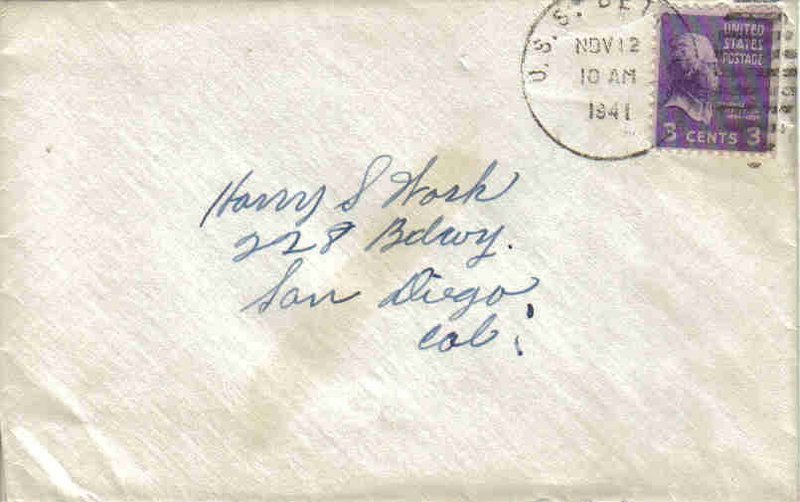 U.S.S. DET
NOV 12
10 AM
1941
UNITED
STATES
POSTAGE
3 CENTS 3
Harry S Work
228 Bdwy.
San Diego
Cal.